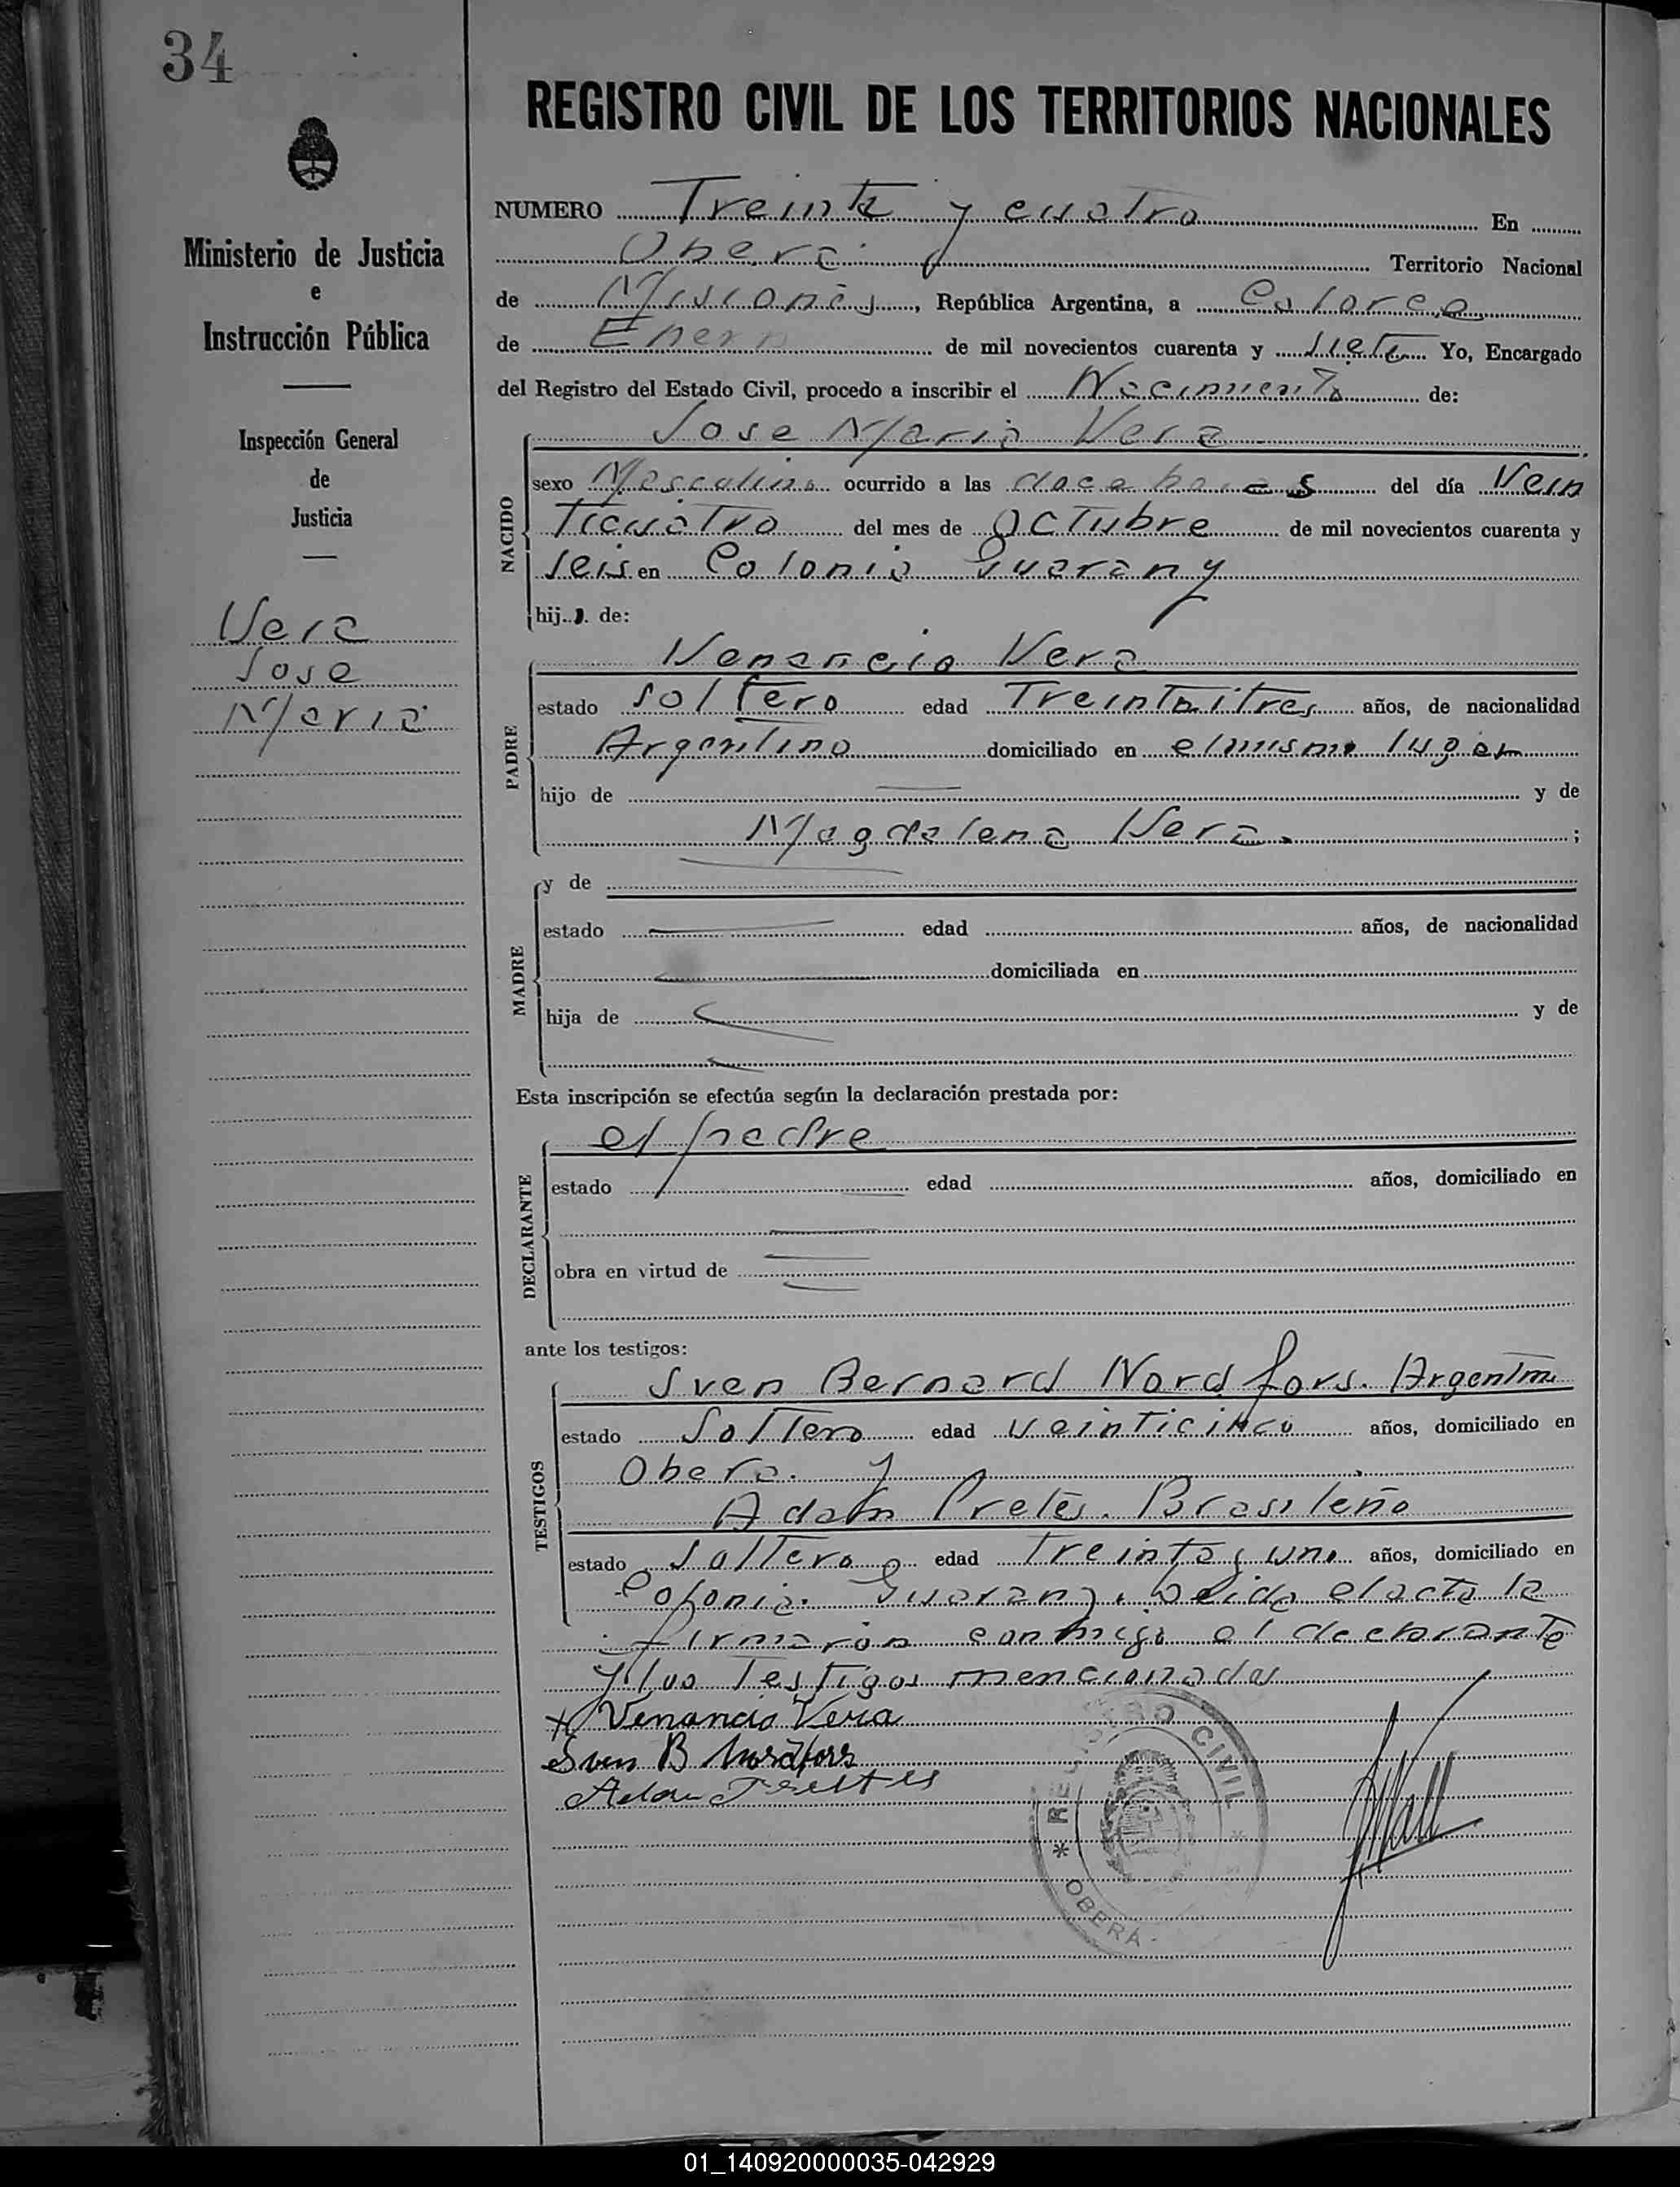 34
REGISTRO CIVIL DE LOS TERRITORIOS NACIONALES
Ministerio de Justicia
e
Instrucción Pública
Inspección General
de
Justicia
Vera
Jose
Maria
NUMERO Treinta y cuatro En
Obera Territorio Nacional
de Misiones, República Argentina, a Catorce
de Enero de mil novecientos cuarenta y siete Yo, Encargado
del Registro del Estado Civil, procedo a inscribir el Nacimiento de:
NACIDO
Jose Maria Vera
sexo Masculino ocurrido a las doce horas del día Vein
ticuatro del mes de Octubre de mil novecientos cuarenta y
seis en Colonia Guarany
hijo de:
PADRE
Venancio Vera
estado soltero edad Treintaitres años, de nacionalidad
Argentino domiciliado en el mismo lugar
hijo de y de
Magdalena Vera ;
MADRE
y de
estado edad años, de nacionalidad
domiciliada en
hija de y de
Esta inscripción se efectúa según la declaración prestada por:
DECLARANTE
el padre
estado edad años, domiciliado en
obra en virtud de
ante los testigos:
TESTIGOS
Sven Bernard Nordfors. Argentino
estado Soltero edad veinticinco años, domiciliado en
Obera. y
Adam Pretes. Brasileño
estado soltero edad treinta y uno años, domiciliado en
Colonia Guarany. Leida el acta la
firmaron conmigo el declarante
y los Testigos mencionados
x Venancio Vera
Sven B Nordfors
Adam
REGISTRO CIVIL
* OBERÁ *
01_140920000035-042929